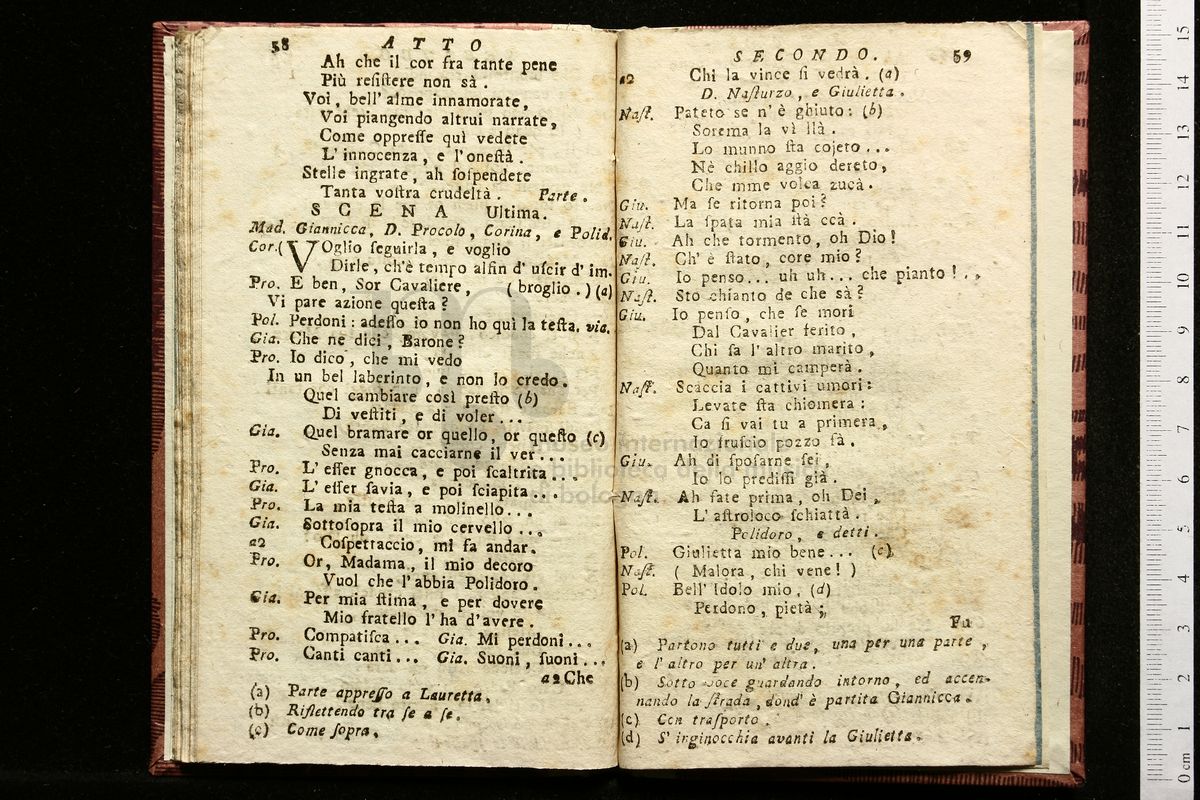 58 ATTO
Ah che il cor fra tante pene
Più reſiſtere non sà.
Voi, bell'alme innamorate,
Voi piangendo altrui narrate,
Come oppreſſe quì vedete
L'innocenza, e l'oneſtà.
Stelle ingrate, ah ſoſpendete
Tanta voſtra crudeltà. Parte.
SCENA Ultima.
Mad. Giannicca, D. Procolo, Corina, e Polid.
Cor.( VOglio ſeguirla, e voglio
Dirle, ch'è tempo alfin d'uſcir d'im-
Pro. E ben, Sor Cavaliere, (broglio.) (a)
Vi pare azione queſta?
Pol. Perdoni: adeſſo io non ho quì la teſta. via.
Gia. Che ne dici, Barone?
Pro. Io dico, che mi vedo
In un bel laberinto, e non lo credo.
Quel cambiare così preſto (b)
Di veſtiti, e di voler...
Gia. Quel bramare or quello, or queſto (c)
Senza mai cacciarne il ver...
Pro. L'eſſer gnocca, e poi ſcaltrita...
Gia. L'eſſer ſavia, e poi ſciapita...
Pro. La mia teſta a molinello...
Gia. Sottoſopra il mio cervello...
a2 Coſpettaccio, mi fa andar.
Pro. Or, Madama, il mio decoro
Vuol che l'abbia Polidoro.
Gia. Per mia ſtima, e per dovere
Mio fratello l'ha d'avere.
Pro. Compatiſca... Gia. Mi perdoni...
Pro. Canti canti... Gia. Suoni, ſuoni...
a2 Che
(a) Parte appreſſo a Lauretta.
(b) Riflettendo tra ſe a ſe.
(c) Come ſopra.
SECONDO. 59
a2 Chi la vince ſi vedrà. (a)
D. Naſturzo, e Giulietta.
Naſt. Pateto se n'è ghiuto: (b)
Sorema la vì llà.
Lo munno ſta cojeto...
Nè chillo aggio dereto,
Che mme volea zucà.
Giu. Ma ſe ritorna poi?
Naſt. La ſpata mia ſtà ccà.
Giu. Ah che tormento, oh Dio!
Naſt. Ch'è ſtato, core mio?
Giu. Io penso... uh uh... che pianto!...
Naſt. Sto chianto de che sà?
Giu. Io penſo, che ſe mori
Dal Cavalier ferito,
Chi ſa l'altro marito,
Quanto mi camperà.
Naſt. Scaccia i cattivi umori:
Levate ſta chiomera:
Ca ſi vai tu a primera,
Io fruſcio pozzo fà.
Giu. Ah di ſpoſarne ſei,
Io lo prediſſi già.
Naſt. Ah fate prima, oh Dei,
L'aſtroloco ſchiattà.
Polidoro, e detti.
Pol. Giulietta mio bene... (c)
Naſt. (Malora, chi vene!)
Pol. Bell'Idolo mio, (d)
Perdono, pietà;
Fu
(a) Partono tutti e due, una per una parte,
e l'altro per un'altra.
(b) Sotto voce guardando intorno, ed accen-
nando la ſtrada, dond'è partita Giannicca.
(c) Con traſporto.
(d) S'inginocchia avanti la Giulietta.
0 cm 1 2 3 4 5 6 7 8 9 10 11 12 13 14 15